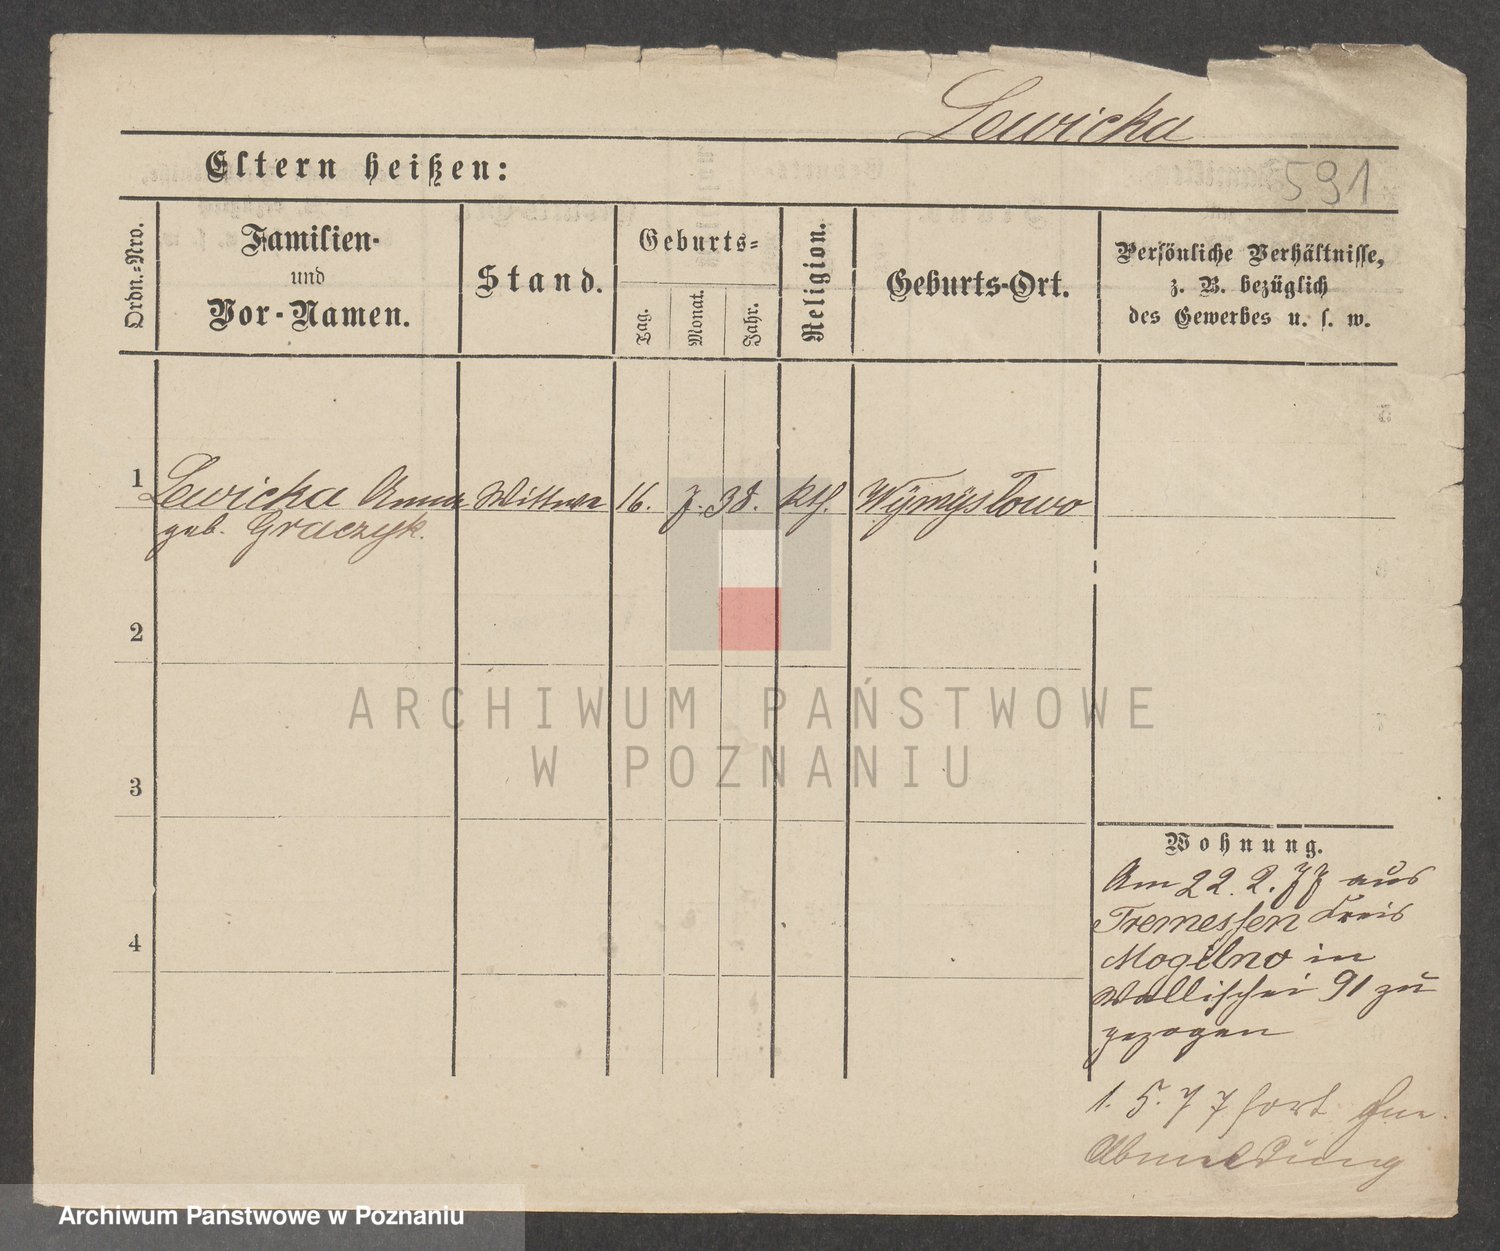 Lewicka
Eltern heißen:
591
Ordn.-Nro.
Familien-
und
Vor-Namen.
Stand.
Geburts-
Tag.
Monat.
Jahr.
Religion.
Geburts-Ort.
Persönliche Verhältnisse,
z. B. bezüglich
des Gewerbes u. s. w.
1 Lewicka Anna Wittwe 16. 7. 38. kth. Wymysłowo
geb. Graczyk.
2
3
4
Wohnung.
Am 22. 2. 77 aus
Tremessen Kreis
Mogilno in
Wallischei 91 zu
gezogen
1. 5. 77 fort
Abmeldung
ARCHIWUM PAŃSTWOWE
W POZNANIU
Archiwum Państwowe w Poznaniu